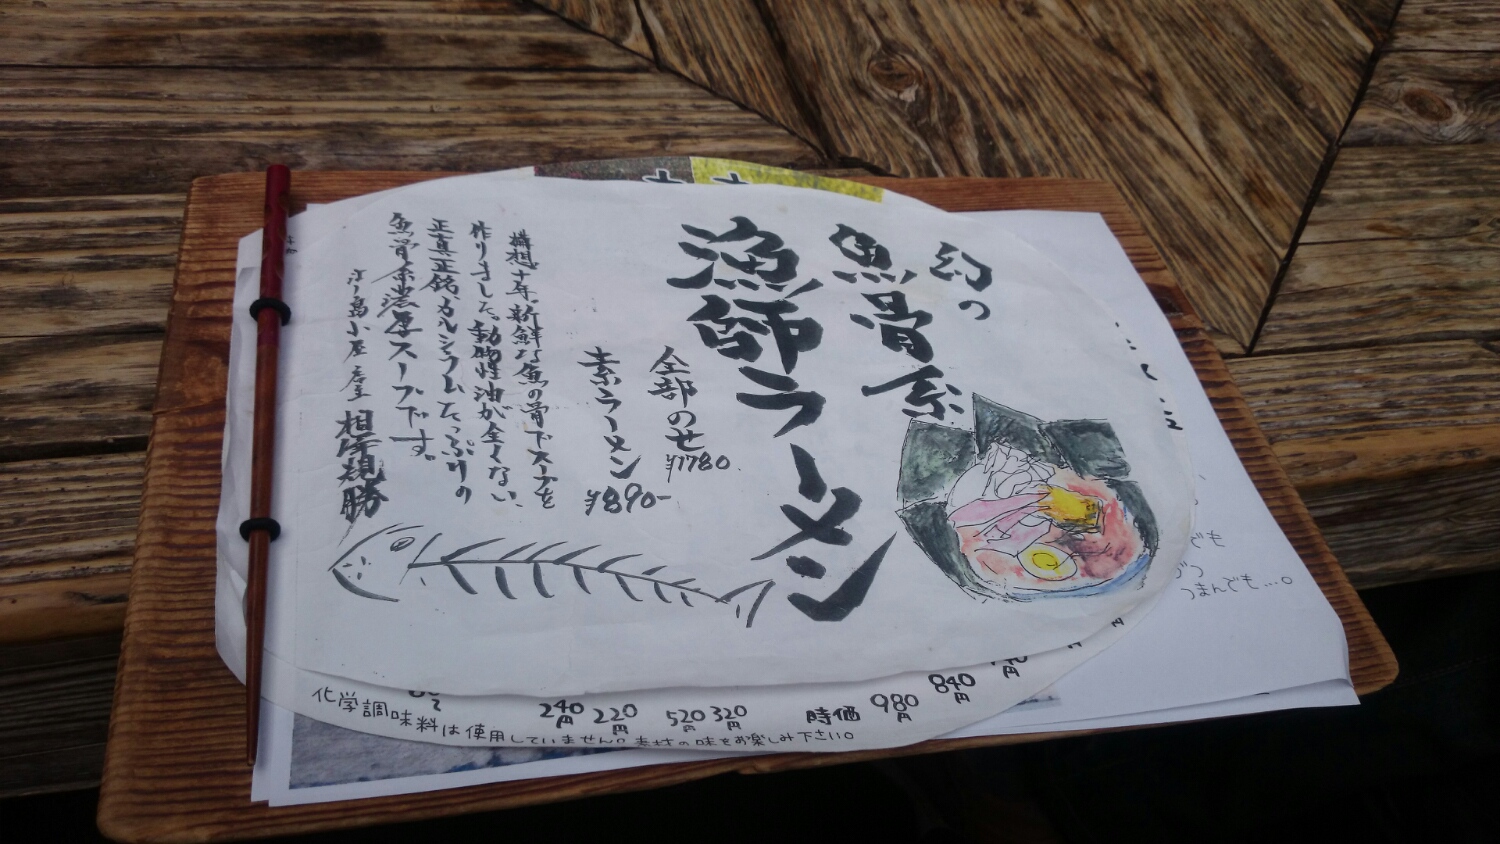 幻の
魚骨系
漁師ラーメン
全部のせ
¥1780
素ラーメン
¥890-
構想十年、新鮮な魚の骨でスープを
作りました。動物性油が全くない、
正真正銘、カルシウムたっぷりの
魚骨系濃厚スープです。
江ノ島小屋 店主
相澤規勝
840円
980円
時価
320円
520円
220円
240円
化学調味料は使用していません。素材の味をお楽しみ下さい。
でも
つまんでも…。